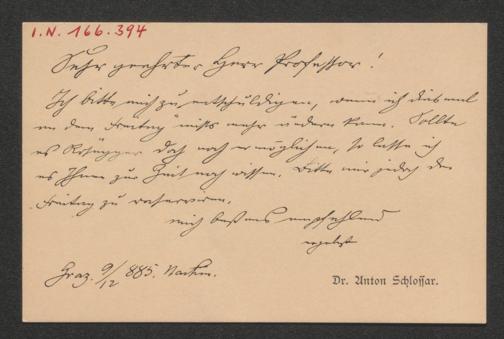 I.N. 166.394
Sehr geehrter Herr Professor!
Ich bitte mich zu entschuldigen, wenn ich diesmal
an dem Freitag nichts mehr ändern kann. Sollte
es Rosegger doch noch ermöglichen, so lasse ich
es Ihnen zur Zeit noch wissen. Bitte mir jedoch den
Freitag zu reserviren.
mich bestens empfehlend
ergebenst
Graz. 9/12 885. Nachm.
Dr. Anton Schlossar.